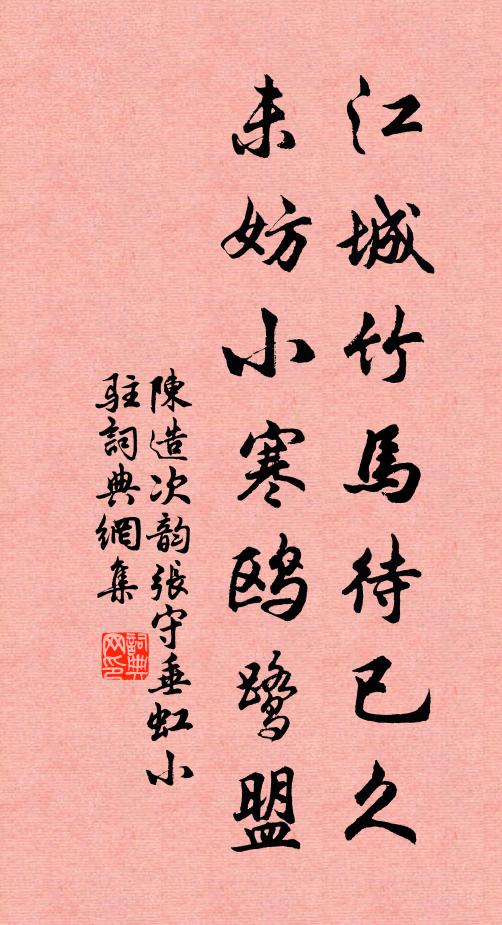 江城竹馬待已久
未妨小寒鸥鷺盟
陳造次韵張守垂虹小
駐詞典網集
詞典
网印